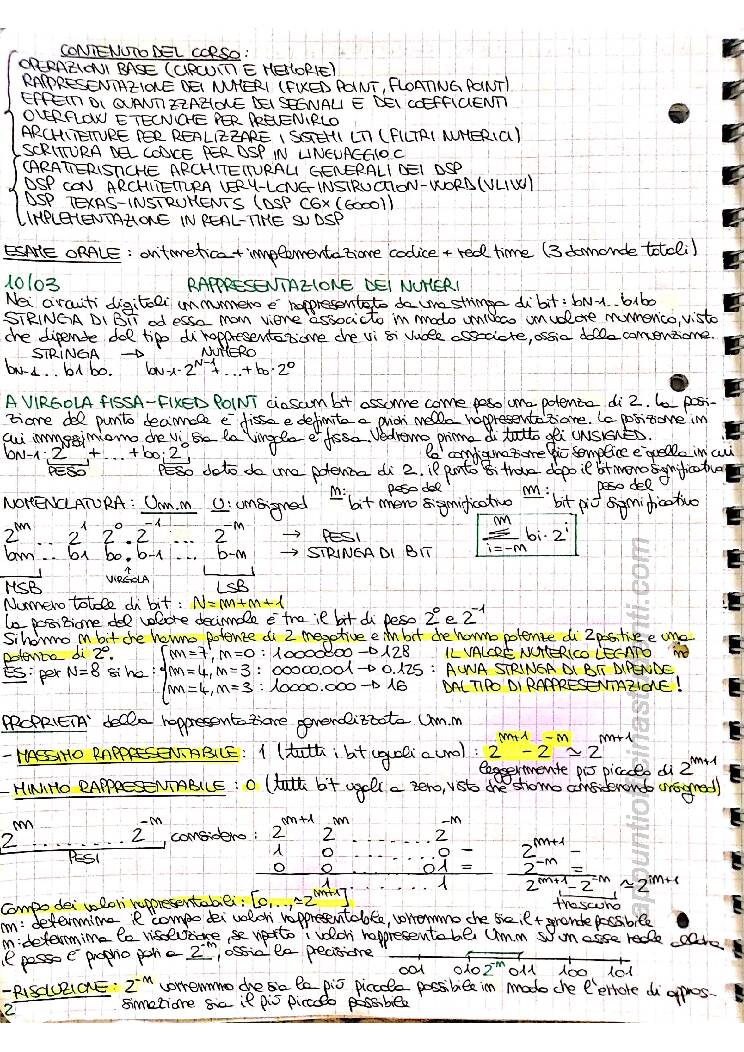 CONTENUTO DEL CORSO:
OPERAZIONI BASE (CIRCUITI E MEMORIE)
RAPPRESENTAZIONE DEI NUMERI (FIXED POINT, FLOATING POINT)
EFFETTI DI QUANTIZZAZIONE DEI SEGNALI E DEI COEFFICIENTI
OVERFLOW E TECNICHE PER PREVENIRLO
ARCHITETTURE PER REALIZZARE I SISTEMI LTI (FILTRI NUMERICI)
SCRITTURA DEL CODICE PER DSP IN LINGUAGGIO C
CARATTERISTICHE ARCHITETTURALI GENERALI DEI DSP
DSP CON ARCHITETTURA VERY-LONG-INSTRUCTION-WORD (VLIW)
DSP TEXAS-INSTRUMENTS (DSP C6X (6000))
IMPLEMENTAZIONE IN REAL-TIME SU DSP
ESAME ORALE: aritmetica + implementazione codice + real time (3 domande totali)
10/03 RAPPRESENTAZIONE DEI NUMERI
Nei circuiti digitali un numero è rappresentato da una stringa di bit: bN-1...b1b0
STRINGA DI BIT ad essa non viene associato in modo univoco un valore numerico, visto
che dipende dal tipo di rappresentazione che vi si vuole associate, ossia dalla convenzione.
STRINGA → NUMERO
bN-1... b1 b0. bN-1·2^N-1 + ... + b0·2^0
A VIRGOLA FISSA-FIXED POINT ciascun bit assume come peso una potenza di 2. La posi-
zione del punto decimale è fissa e definita a priori nella rappresentazione. La posizione in
cui immaginiamo che vi sia la virgola è fissa. Vedremo prima di tutto gli UNSIGNED.
bN-1·2^N-1 + ... + b0·2^0 la configurazione più semplice è quella in cui
PESO PESO dato da una potenza di 2. il punto si trova dopo il bit meno significativo
NOMENCLATURA: Um.n U: unsigned n: peso del bit meno significativo m: peso del bit più significativo
2^m ... 2^1 2^0 . 2^-1 ... 2^-n → PESI
bm ... b1 b0 . b-1 ... b-n → STRINGA DI BIT
m Σ i=-n bi·2^i
VIRGOLA
MSB LSB
Numero totale di bit: N=m+n+1
La posizione del valore decimale è tra il bit di peso 2^0 e 2^-1
Si hanno n bit che hanno potenze di 2 negative e m bit che hanno potenze di 2 positive e una
potenza di 2^0.
ES: per N=8 si ha:
m=7, n=0: 10000000 → 128 IL VALORE NUMERICO LEGATO
m=4, n=3: 00000.001 → 0.125: A UNA STRINGA DI BIT DIPENDE
m=4, n=3: 10000.000 → 16 DAL TIPO DI RAPPRESENTAZIONE!
PROPRIETA' della rappresentazione generalizzata Um.n
- MASSIMO RAPPRESENTABILE: 1 (tutti i bit uguali a uno): 2^m+1 - 2^-n ≃ 2^m+1
leggermente più piccolo di 2^m+1
- MINIMO RAPPRESENTABILE: 0 (tutti bit ugali a zero, visto che stiamo considerando unsigned)
2^m ........ 2^-n considero: 2^m+1 2^m ........ 2^-n
PESI
1 0 ........ 0 -
0 0 ........ 01 =
1 ........ 1
2^m+1 -
2^-n =
2^m+1 - 2^-n ≃ 2^m+1
trascuro
Campo dei valori rappresentabili: [0,...,≃2^m+1]
m: determina il campo dei valori rappresentabile, vorremmo che sia il + grande possibile
n: determina la risoluzione, se riporto i valori rappresentabili Um.n su un asse reale allora
il passo è proprio pari a 2^-n, ossia la precisione
001 010 2^-n 011 100 101
- RISOLUZIONE: 2^-n vorremmo che sia la più piccola possibile in modo che l'errore di appros-
simazione sia il più piccolo possibile
2